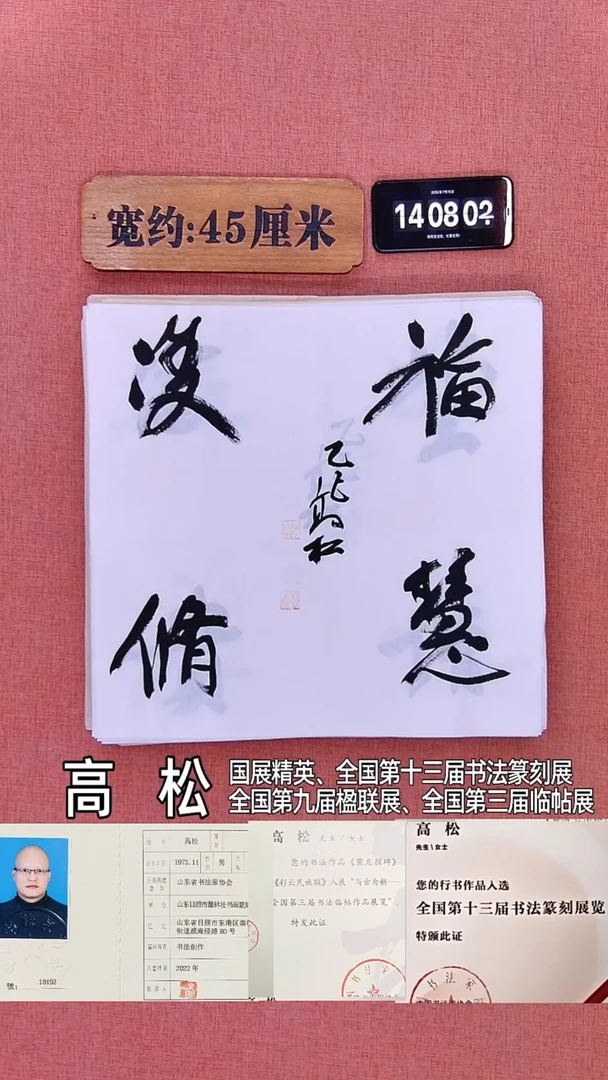 宽约:45厘米
14 08 02
福慧
雙脩
乙巳高松
高 松
国展精英、全国第十三届书法篆刻展
全国第九届楹联展、全国第三届临帖展
高松
1975.11 男
山东省书法家协会
山东省日照市东港区
街道威海径路 80 号
书法创作
2022年
高 松 先生/女士
您的书法作品《爨龙颜碑》
《彩云民族联》入展“与古为新
全国第三届书法临帖作品展览”，
特发此证
高 松
先生\女士
您的行书作品入选
全国第十三届书法篆刻展览
特颁此证